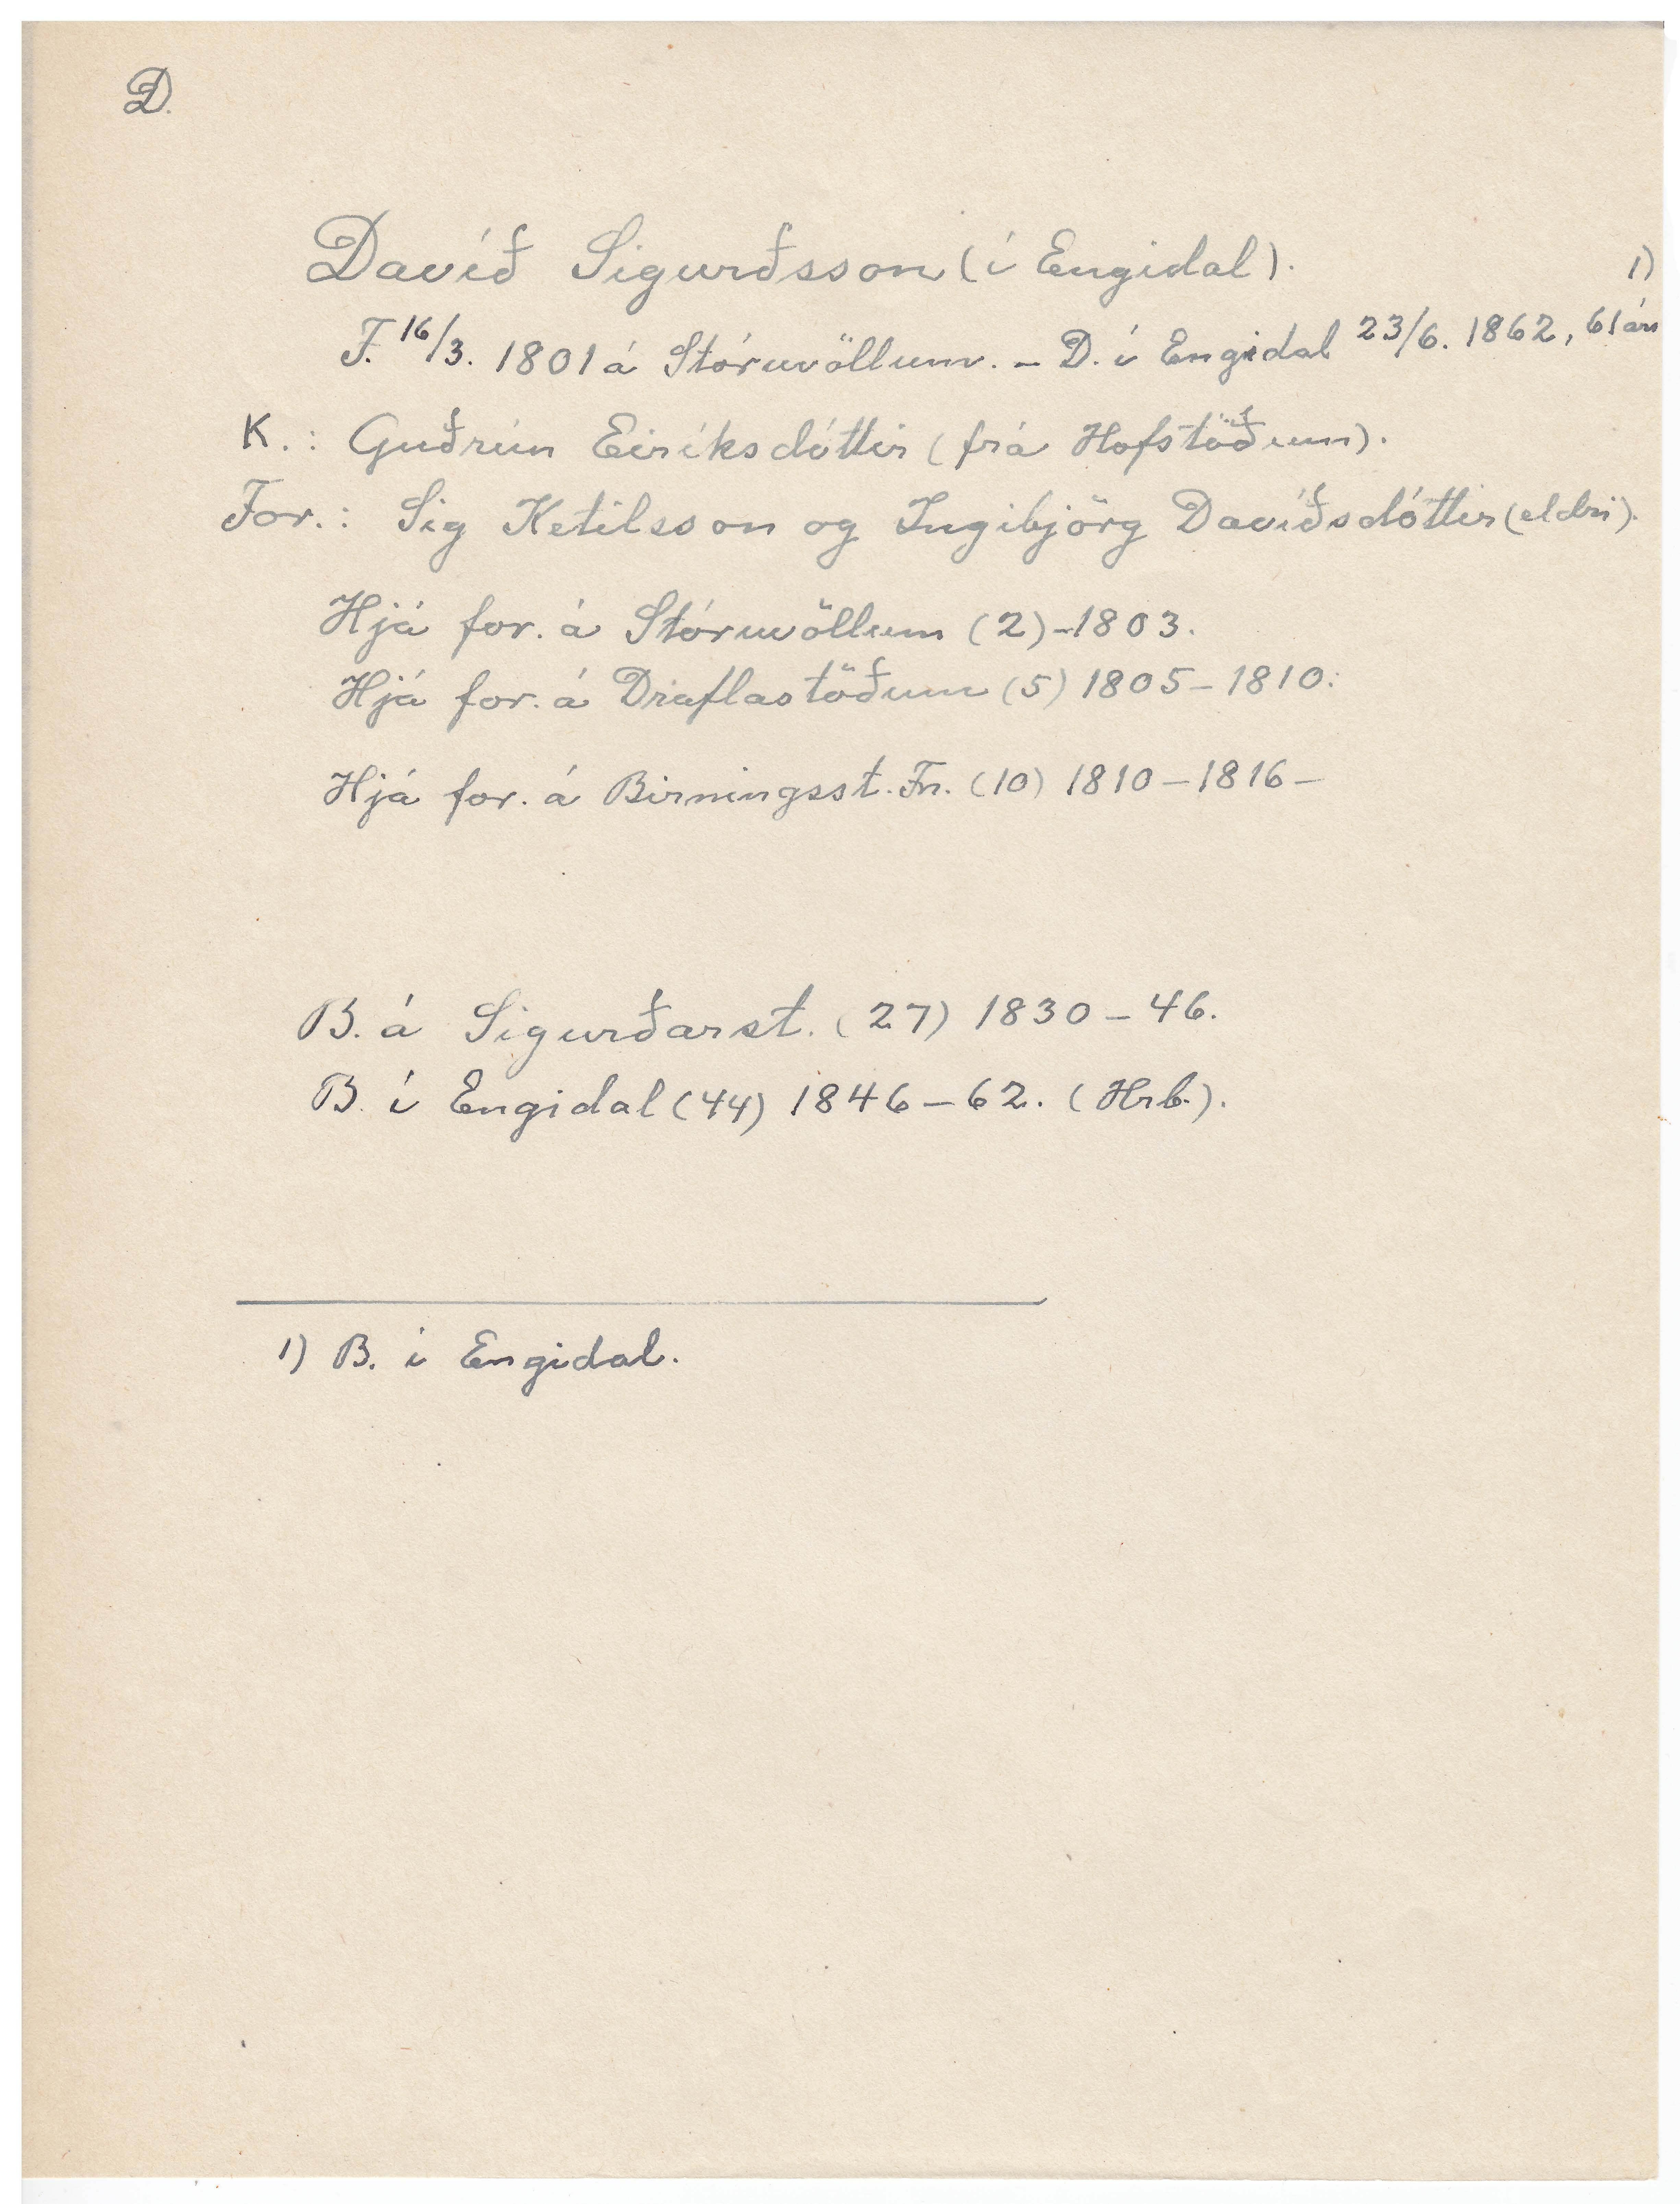 D.
Davíð Sigurðsson (í Engidal).
F. 16/3. 1801 á Stóruvöllum. – D. í Engidal 23/6. 1862, 61 árs 1)
K.: Guðrún Eiríksdóttir (frá Hofstöðum).
For.: Sig Ketilsson og Ingibjörg Davíðsdóttir (eldri).
Hjá for. á Stóruvöllum (2) -1803.
Hjá for. á Draflastöðum (5) 1805 – 1810.
Hjá for. á Birningsst. Fn. (10) 1810 – 1816 –
B. á Sigurðarst. (27) 1830 – 46.
B. í Engidal (44) 1846 – 62. (Hrb.).
1) B. í Engidal.